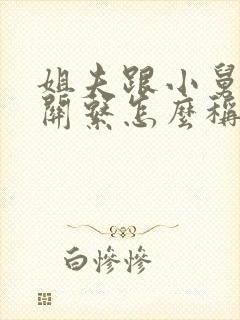 姐夫跟小舅
關繫怎麼稱
白慘慘